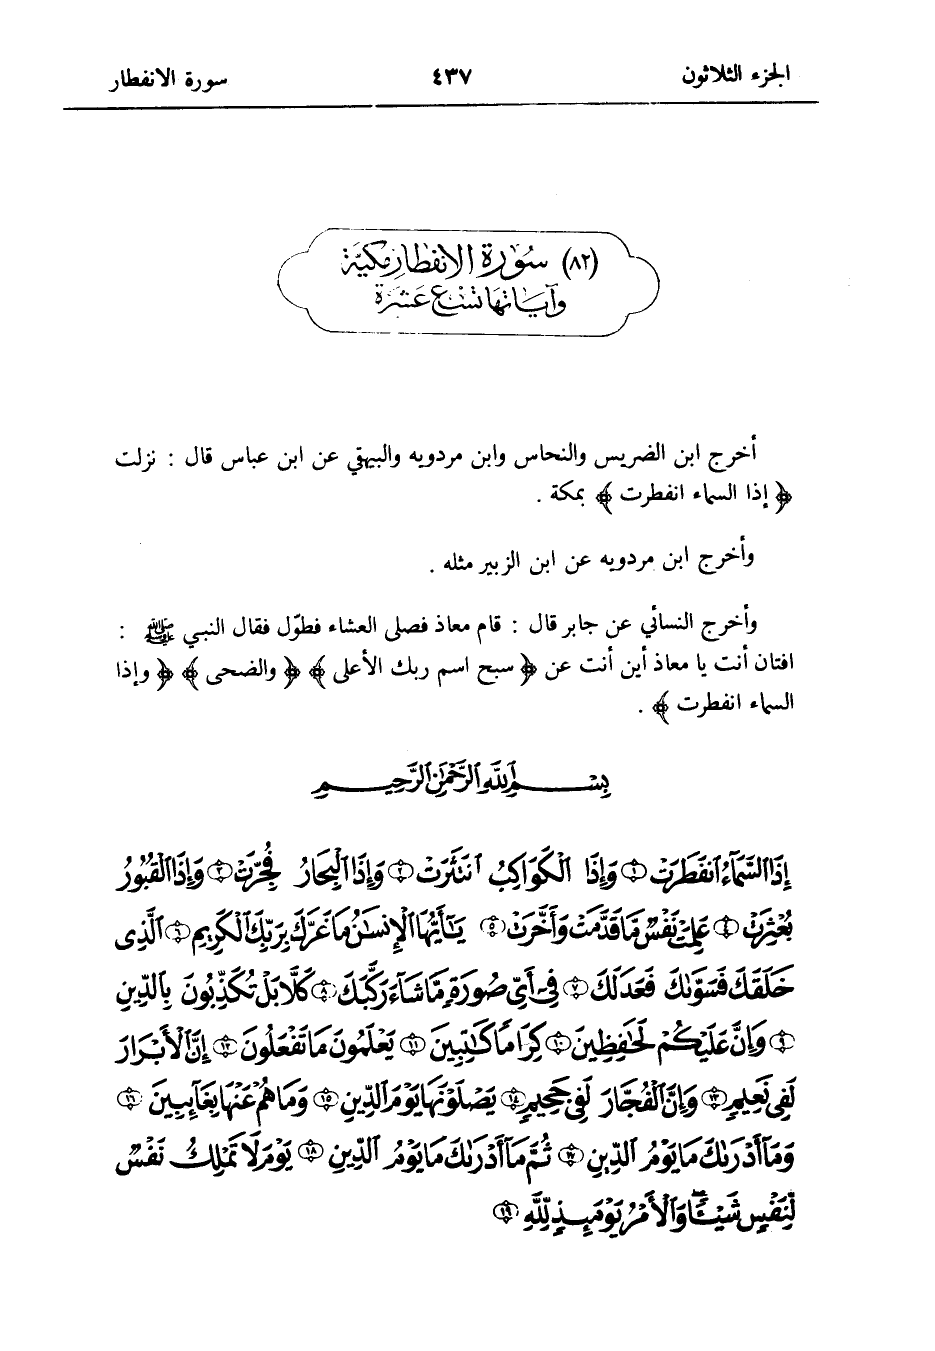 الجزء الثلاثون ٤٣٧ سورة الانفطار
(٨٢) سُورَة الانفطَار مكيّة
وآياتها تسع عَشرَة
أخرج ابن الضريس والنحاس وابن مردويه والبيهقي عن ابن عباس قال : نزلت
﴿ إذا السماء انفطرت ﴾ بمكة .
وأخرج ابن مردويه عن ابن الزبير مثله .
وأخرج النسائي عن جابر قال : قام معاذ فصلى العشاء فطوّل فقال النبي ﷺ :
افتان أنت يا معاذ أين أنت عن ﴿ سبح اسم ربك الأعلى ﴾ ﴿ والضحى ﴾ ﴿ وإذا
السماء انفطرت ﴾ .
بِسْمِ اللَّهِ الرَّحْمَٰنِ الرَّحِيمِ
إِذَا السَّمَآءُ انفَطَرَتْ ١ وَإِذَا الْكَوَاكِبُ انتَثَرَتْ ٢ وَإِذَا الْبِحَارُ فُجِّرَتْ ٣ وَإِذَا الْقُبُورُ
بُعْثِرَتْ ٤ عَلِمَتْ نَفْسٌ مَّا قَدَّمَتْ وَأَخَّرَتْ ٥ يَٰٓأَيُّهَا الْإِنسَٰنُ مَا غَرَّكَ بِرَبِّكَ الْكَرِيمِ ٦ الَّذِى
خَلَقَكَ فَسَوَّىٰكَ فَعَدَلَكَ ٧ فِىٓ أَىِّ صُورَةٍ مَّا شَآءَ رَكَّبَكَ ٨ كَلَّا بَلْ تُكَذِّبُونَ بِالدِّينِ
٩ وَإِنَّ عَلَيْكُمْ لَحَٰفِظِينَ ١٠ كِرَامًا كَٰتِبِينَ ١١ يَعْلَمُونَ مَا تَفْعَلُونَ ١٢ إِنَّ الْأَبْرَارَ
لَفِى نَعِيمٍ ١٣ وَإِنَّ الْفُجَّارَ لَفِى جَحِيمٍ ١٤ يَصْلَوْنَهَا يَوْمَ الدِّينِ ١٥ وَمَا هُمْ عَنْهَا بِغَآئِبِينَ ١٦
وَمَآ أَدْرَىٰكَ مَا يَوْمُ الدِّينِ ١٧ ثُمَّ مَآ أَدْرَىٰكَ مَا يَوْمُ الدِّينِ ١٨ يَوْمَ لَا تَمْلِكُ نَفْسٌ
لِّنَفْسٍ شَيْـًٔا وَالْأَمْرُ يَوْمَئِذٍ لِّلَّهِ ١٩